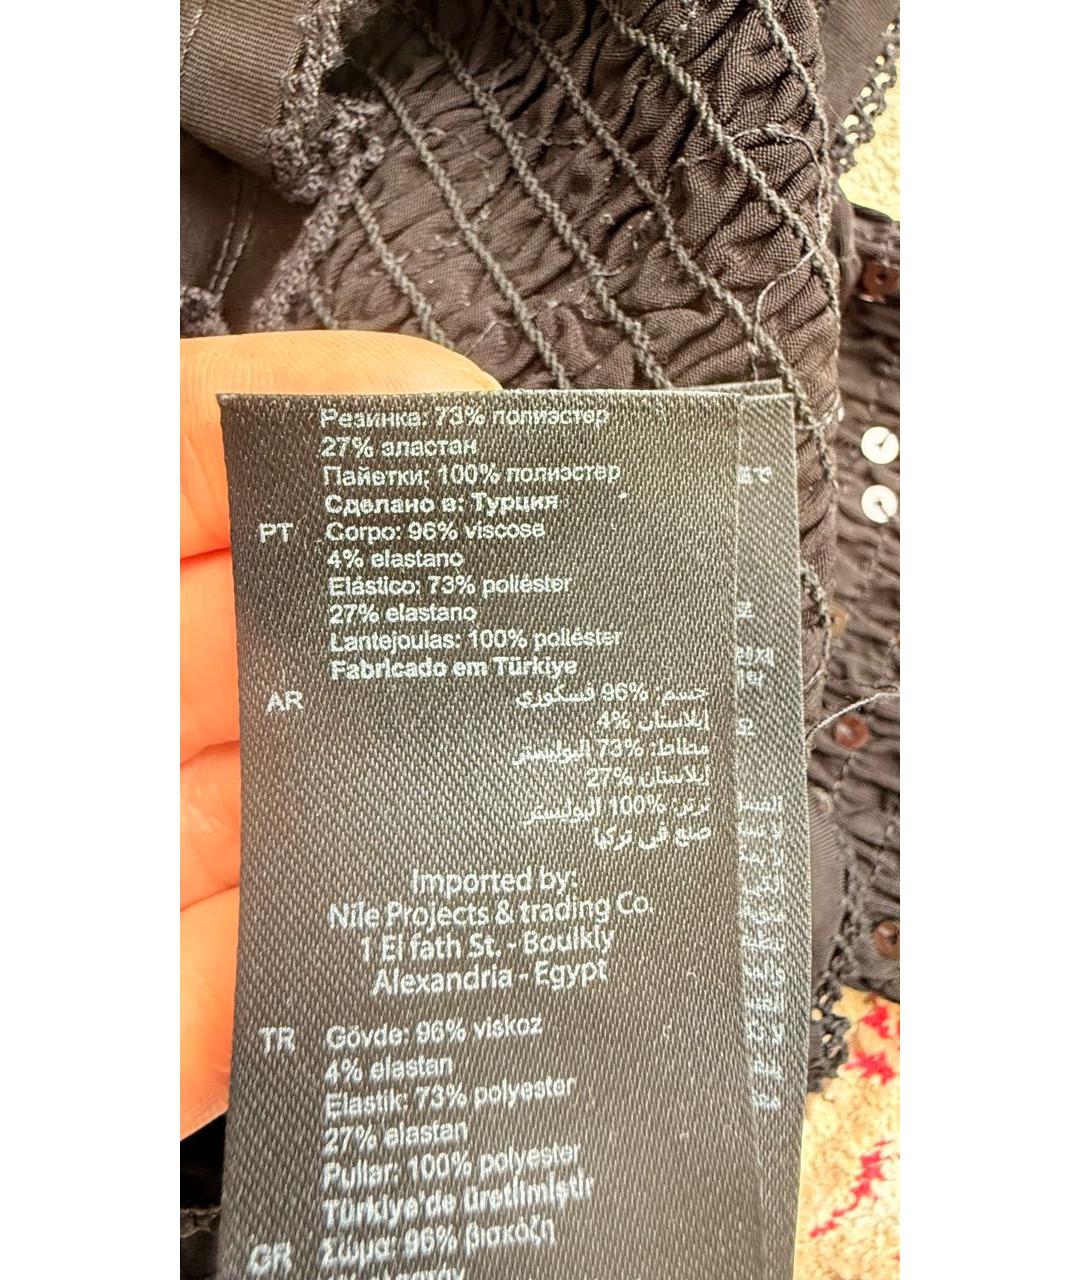 Резинка: 73% полиэстер
27% эластан
Пайетки: 100% полиэстер
Сделано в: Турция
PT Corpo: 96% viscose
4% elastano
Elástico: 73% poliéster
27% elastano
Lantejoulas: 100% poliéster
Fabricado em Türkiye
AR جسم: 96% فسكوزي
إيلاستان 4%
مطاط: 73% البوليستر
إيلاستان 27%
ترتر: 100% البوليستر
صنع في تركيا
Imported by:
Nile Projects & trading Co.
1 El fath St. - Boulkly
Alexandria - Egypt
TR Gövde: 96% viskoz
4% elastan
Elastik: 73% polyester
27% elastan
Pullar: 100% polyester
Türkiye'de üretilmiştir
GR Σώμα: 96% βισκόζη